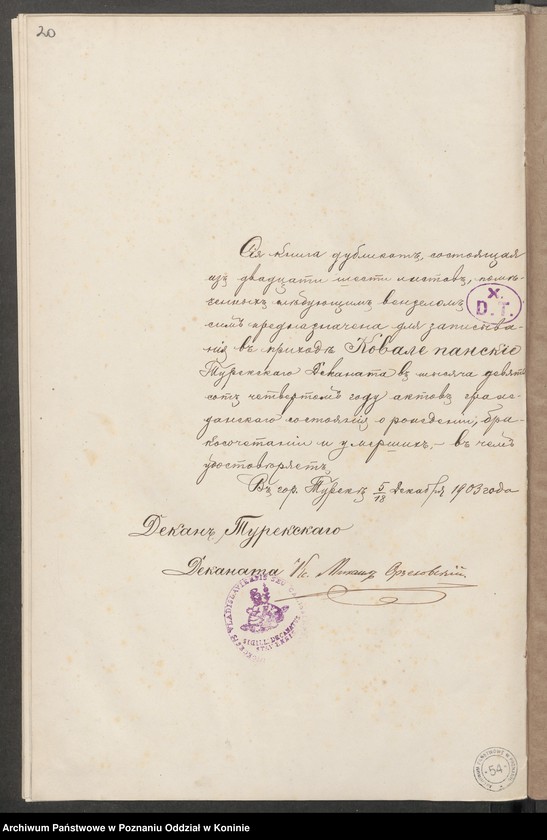 20
Сія книга дубликатъ, состоящая
изъ двадцати шести листовъ, помѣ-
ченныхъ слѣдующимъ вензеломъ
X.
D. T.
симъ предназначена для записыва-
нія въ приходѣ Ковале панскіе
Турекскаго Деканата въ тысяча девять
сотъ четвертомъ году актовъ граж-
данскаго состоянія о рожденіи, бра-
косочетаніи и умершихъ, – въ чемъ
удостовѣряетъ,
Въ гор. Турекѣ 5/18 Декабря 1903 года
Деканъ Турекскаго
Деканата Кс. Михаилъ Орженовскій.
SIGILL. DECANATUS
54
Archiwum Państwowe w Poznaniu Oddział w Koninie